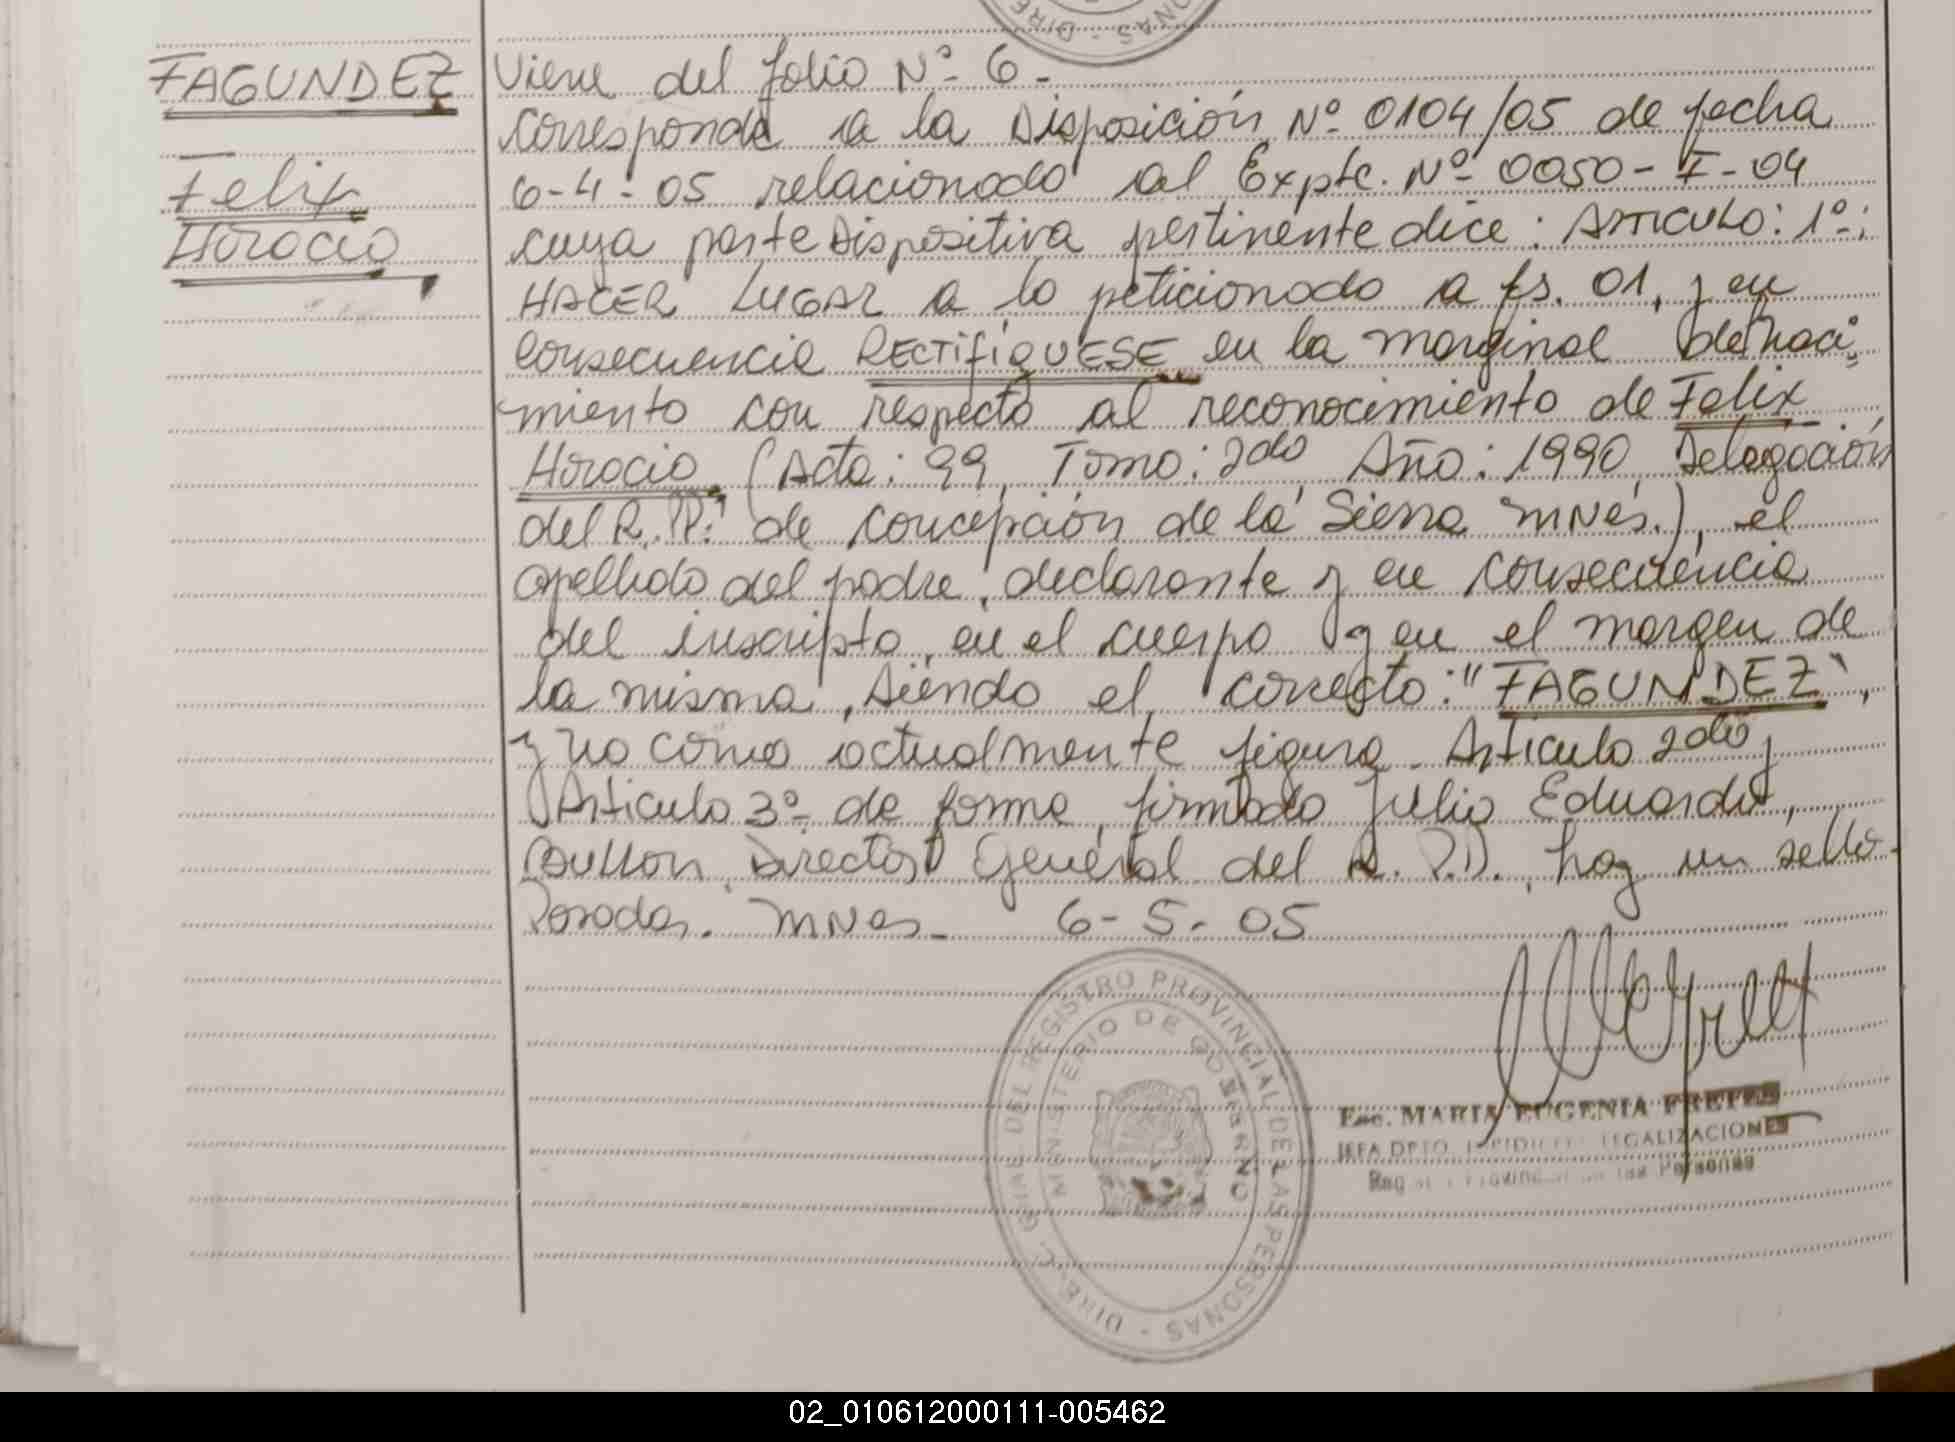 FAGUNDEZ
Felix
Horacio
Viene del folio Nº 6.-
Corresponde a la Disposición Nº 0104/05 de fecha
6-4-05 relacionado al Expte. Nº 0050-I-04
cuya parte Dispositiva pertinente dice: Articulo: 1º:
HACER LUGAR a lo peticionado a fs. 01, y en
consecuencia RECTIFIQUESE en la marginal de naci-
miento con respecto al reconocimiento de Felix
Horacio (Acta: 99, Tomo: 2do Año: 1990 Delegación
del R.P.P. de Concepción de la Sierra Mnes.), el
apellido del padre, declarante y en consecuencia
del inscripto, en el cuerpo y en el margen de
la misma, siendo el correcto: "FAGUNDEZ",
y no como actualmente figura. Articulo 2do y
Articulo 3º de forma, firmado Julio Eduardo
Director General del R.P.P., hay un sello.
Posadas. Mnes- 6-5-05
DIREC. GRAL DEL REGISTRO PROVINCIAL DE LAS PERSONAS
MINISTERIO DE GOBIERNO
Esc. MARIA EUGENIA
JEFA DPTO. LEGALIZACIONES
las Personas
02_010612000111-005462